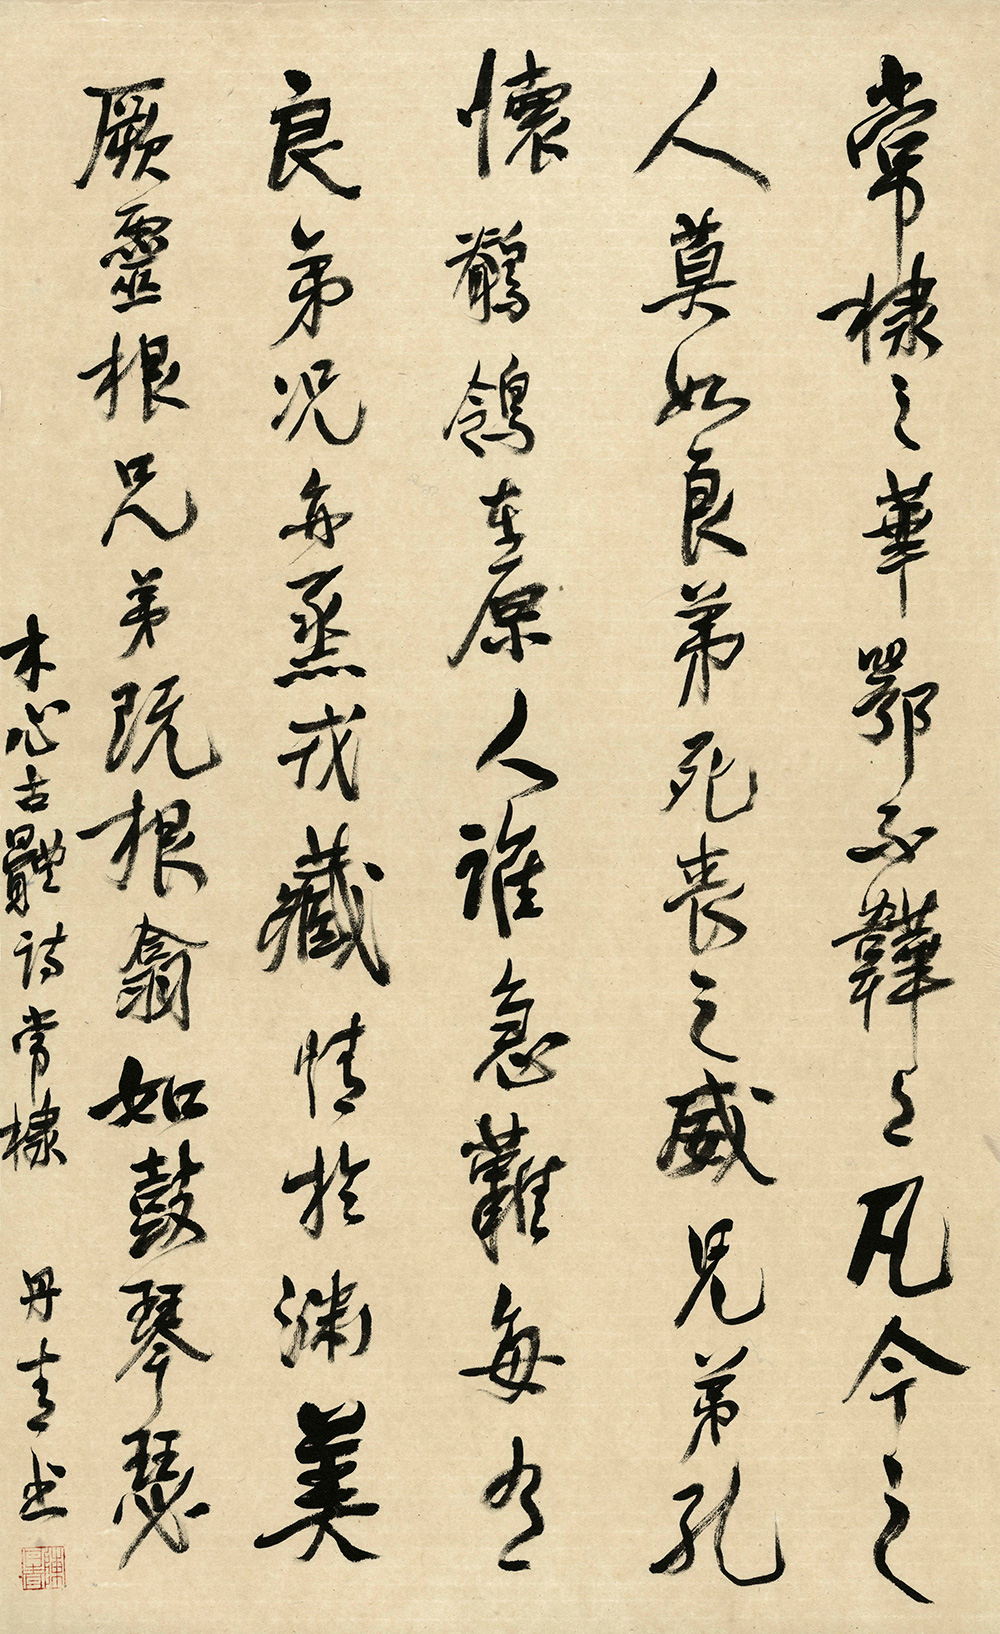 常棣之華鄂不韡々凡今之
人莫如良弟死喪之威兄弟孔
懷鶺鴒在原人誰急難每有
良弟况亦烝戎藏情於淵美
厥靈根兄弟既根翕如鼓琴瑟
木心古體詩常棣 丹青书
陳丹青